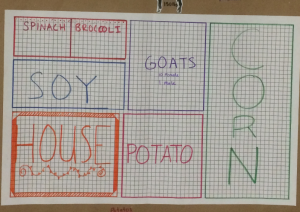 SPINACH BROCCOLI
SOY
GOATS
CORN
HOUSE
POTATO